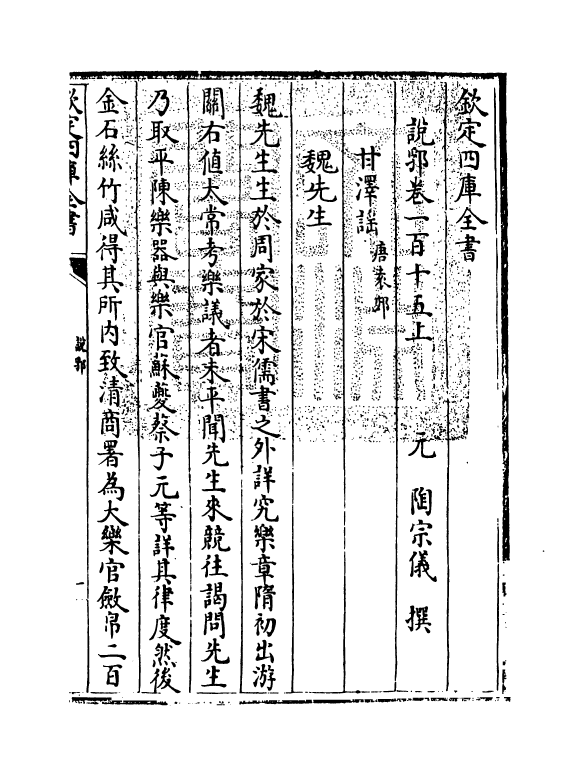 欽定四庫全書
說郛卷一百十五上　元　陶宗儀　撰
甘澤謡唐袁郊
魏先生
魏先生生於周家於宋儒書之外詳究樂章隋初出游
關右值太常考樂議者未平聞先生來競往謁問先生
乃取平陳樂器與樂官蘇夔蔡子元等詳其律度然後
金石絲竹咸得其所内致清商署為大樂官斂帛二百
欽定四庫全書
說郛
一